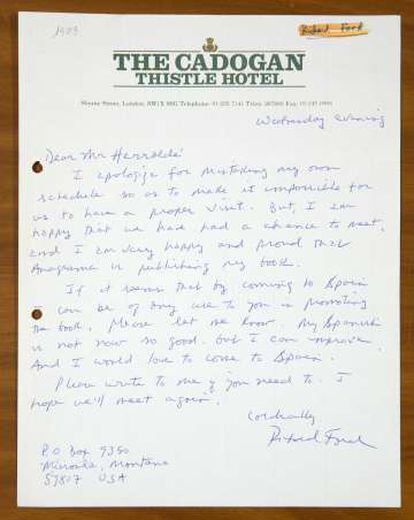 1989
Richard Ford
THE CADOGAN
THISTLE HOTEL
Sloane Street, London, SW1X 9SG Telephone: 01-235 7141 Telex: 267893 Fax:
Wednesday evening
Dear Mr Herralde:
I apologize for mistaking my own
schedule so as to make it impossible for
us to have a proper visit. But, I am
happy that we have had a chance to meet,
and I am very happy and proud that
Anagrama is publishing my book.
If it seems that by coming to Spain
I can be of any use to you in promoting
the book, please let me know. My Spanish
is not now so good. but I can improve.
And I would love to come to Spain.
Please write to me if you need to. I
hope we'll meet again.
Cordially
Richard Ford
P.O Box 9350
Missoula, Montana
59807 USA